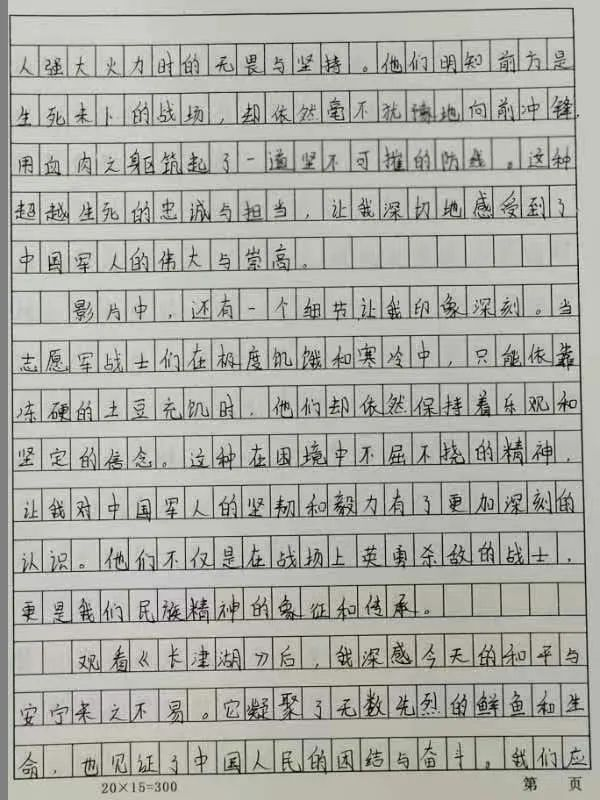 人强大火力时的无畏与坚持。他们明知前方是
生死未卜的战场，却依然毫不犹豫地向前冲锋，
用血肉之身区筑起了一道坚不可摧的防线。这种
超越生死的忠诚与担当，让我深切地感受到了
中国军人的伟大与崇高。
影片中，还有一个细节让我印象深刻。当
志愿军战士们在极度饥饿和寒冷中，只能依靠
冻硬的土豆充饥时，他们却依然保持着乐观和
坚定的信念。这种在困境中不屈不挠的精神，
让我对中国军人的坚韧和毅力有了更加深刻的
认识。他们不仅是在战场上英勇杀敌的战士，
更是我们民族精神的象征和传承。
观看《长津湖》后，我深感今天的和平与
安宁来之不易。它凝聚了无数先烈的鲜鱼和生
命，也见证了中国人民的团结与奋斗。我们应
20×15=300 第 页